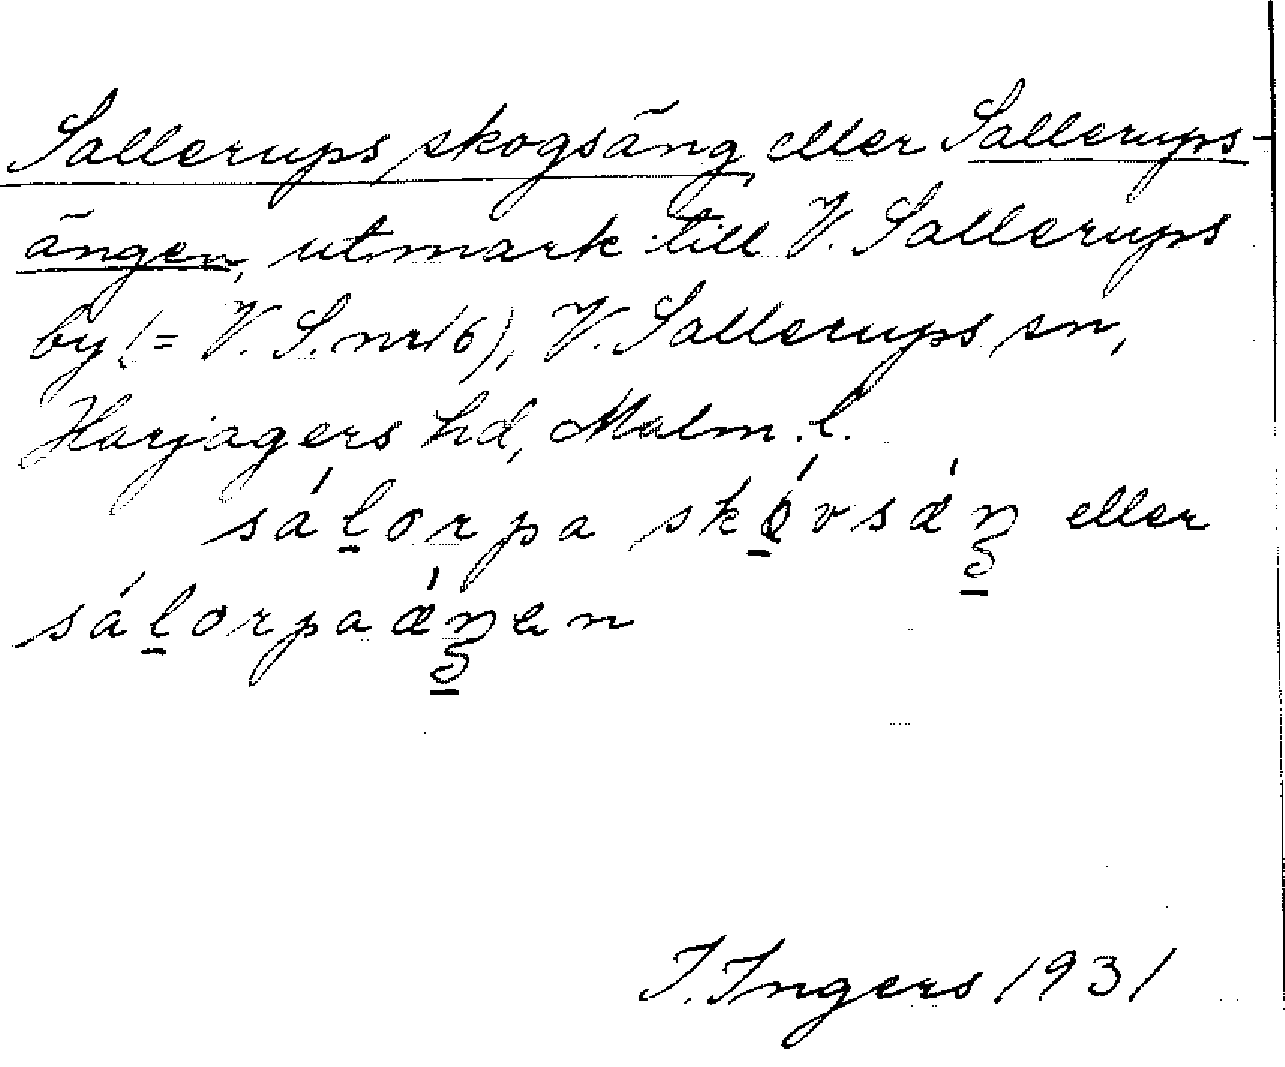 Sallerups skogsäng eller Sallerups-
ängen, utmark till V. Sallerups
by (= V. S. nr 16), V. Sallerups sn,
Harjagers hd, Malm. l.
sálorpa skóvsǽŋ eller
sálorpaǽŋen
I. Ingers 1931